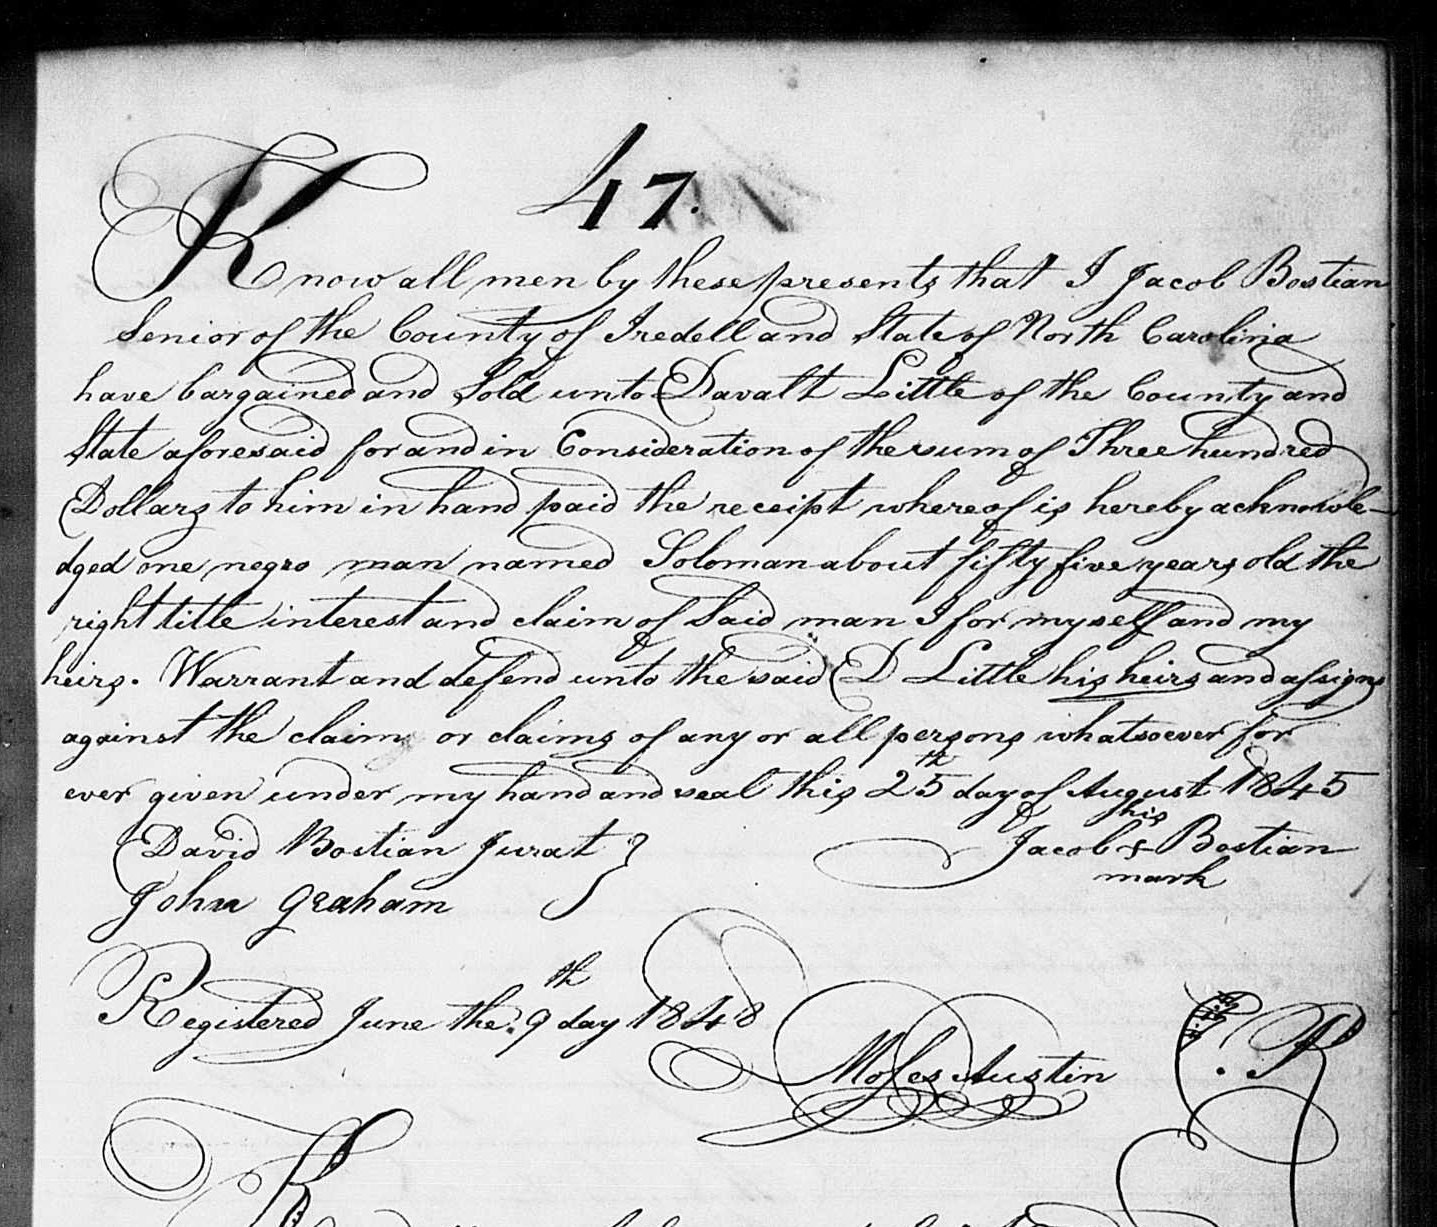 47.
Know all men by these presents that I Jacob Bostian
Senior of the County of Iredell and State of North Carolina
have bargained and Sold unto Davalt Little of the County and
State aforesaid for and in Consideration of the sum of Three hundred
Dollars to him in hand paid the receipt whereof is hereby acknowle-
dged one negro man named Soloman about fifty five years old the
right title interest and claim of Said man I for myself and my
heirs. Warrant and defend unto the said D Little his heirs and assigns
against the claim or claims of any or all persons whatsoever for
ever given under my hand and seal this 25th day of August 1845
David Bostian Jurat }
his
Jacob + Bostian
mark
John Graham
Registered June the 9th day 1848
Moses Austin
P. R